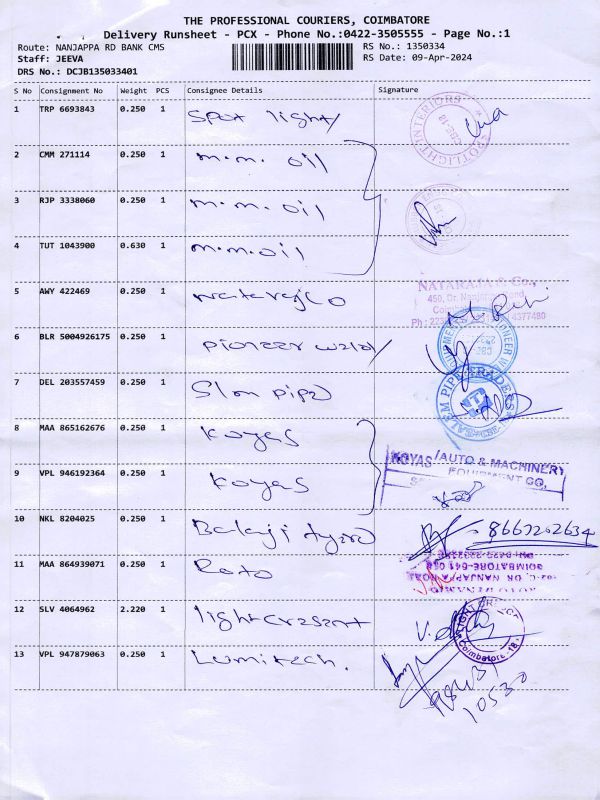 THE PROFESSIONAL COURIERS, COIMBATORE
Delivery Runsheet - PCX - Phone No.:0422-3505555 - Page No.:1
Route: NANJAPPA RD BANK CMS
RS No.: 1350334
Staff: JEEVA
RS Date: 09-Apr-2024
DRS No.: DCJB135033401
S No Consignment No Weight PCS Consignee Details Signature
1 TRP 6693843 0.250 1 Spot light
SPOTLIGHT INTERIORS CBE-18
2 CMM 271114 0.250 1 m.m. oil
3 RJP 3338060 0.250 1 m.m. oil
4 TUT 1043900 0.630 1 m.m. oil
5 AWY 422469 0.250 1 Nataraj Co
NATARAJA & Co.,
450, Dr. Nanjappa Road
6 BLR 5004926175 0.250 1 Pioneer weld
7 DEL 203557459 0.250 1 Slm pipe
SALEM PIPE TRADERS
8 MAA 865162676 0.250 1 Koyas
9 VPL 946192364 0.250 1 Koyas
KOYAS AUTO & MACHINERY
EQUIPMENT CO.
10 NKL 8204025 0.250 1 Balaji tyre
8667202634
11 MAA 864939071 0.250 1 Roto
COIMBATORE-641 018
DR NANJAPPA ROAD
12 SLV 4064962 2.220 1 light crasent
Coimbatore-18
13 VPL 947879063 0.250 1 Lumitech.
10530